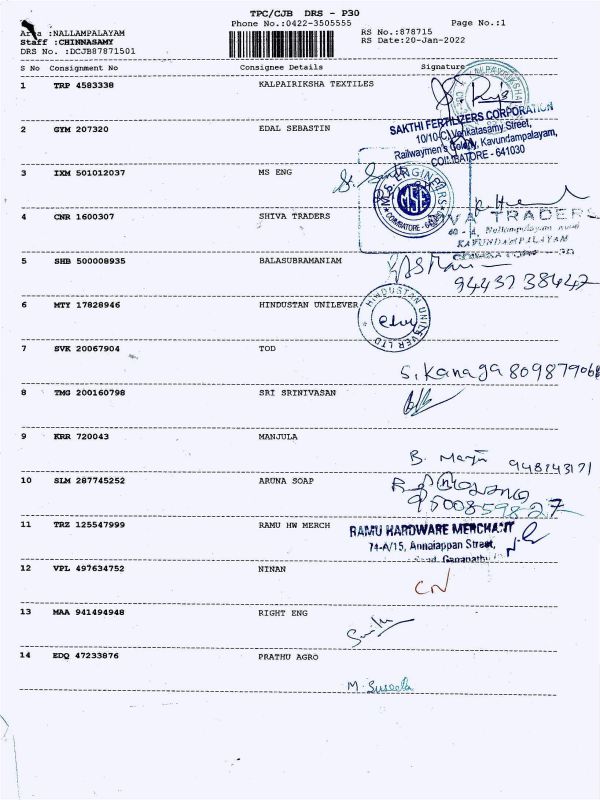 TPC/CJB DRS - P30
Phone No.:0422-3505555 Page No.:1
Area :NALLAMPALAYAM RS No.:878715
Staff :CHINNASAMY RS Date:20-Jan-2022
DRS No. :DCJB87871501
S No Consignment No Consignee Details Signature
1 TRP 4583338 KALPAIRIKSHA TEXTILES
SAKTHI FERTILIZERS CORPORATION
10/10-C, Venkatasamy Street,
2 GYM 207320 EDAL SEBASTIN
Railwaymen's Colony, Kavundampalayam,
COIMBATORE - 641030
3 IXM 501012037 MS ENG
ENGINEERS
MSE
COIMBATORE
4 CNR 1600307 SHIVA TRADERS
VA TRADERS
Nallampalayam Road
KAVUNDAMPALAYAM
5 SHB 500008935 BALASUBRAMANIAM
9443738647
6 MTY 17828946 HINDUSTAN UNILEVER
HINDUSTAN UNILEVER LTD
7 SVK 20067904 TOD
S. Kanaga 809879068
8 TMG 200160798 SRI SRINIVASAN
9 KRR 720043 MANJULA
B. 948143171
10 SLM 287745252 ARUNA SOAP
9500859827
11 TRZ 125547999 RAMU HW MERCH
RAMU HARDWARE MERCHANT
74-A/15, Annaiappan Street,
12 VPL 497634752 NINAN
CN
13 MAA 941494948 RIGHT ENG
14 EDQ 47233876 PRATHU AGRO
M. Suseela